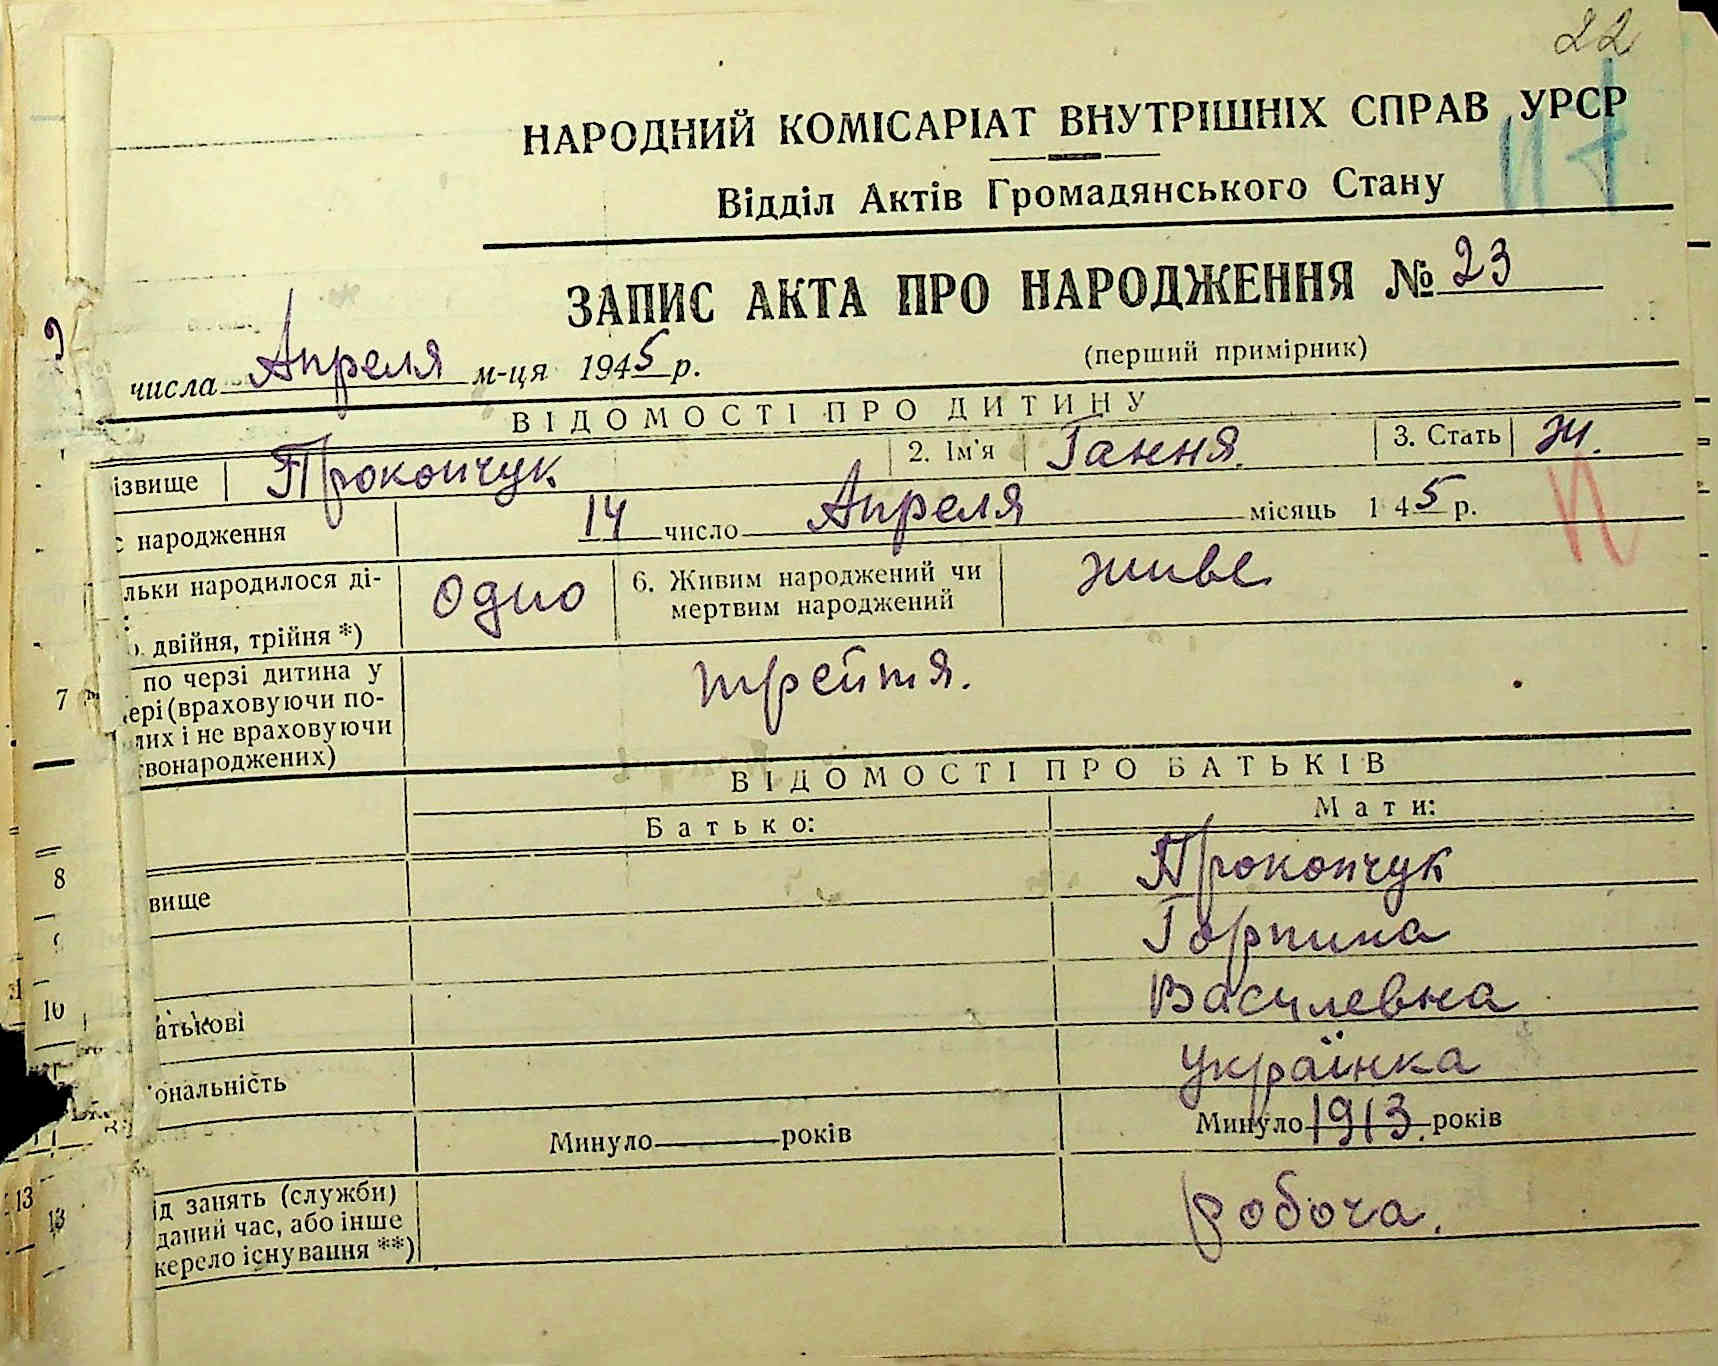 22
НАРОДНИЙ КОМІСАРІАТ ВНУТРІШНІХ СПРАВ УРСР
Відділ Актів Громадянського Стану
ЗАПИС АКТА ПРО НАРОДЖЕННЯ № 23
(перший примірник)
числа Апреля м-ця 1945 р.
ВІДОМОСТІ ПРО ДИТИНУ
ізвище Прокопчук 2. Ім'я Гання 3. Стать ж.
народження 14 число Апреля місяць 1 45 р.
льки народилося ді- Одно 6. Живим народжений чи живе
мертвим народжений
двійня, трійня *)
по черзі дитина у трейтя.
7 ері (враховуючи по-
лих і не враховуючи
твонароджених)
ВІДОМОСТІ ПРО БАТЬКІВ
Батько: Мати:
8 вище Прокопчук
Горпина
10 атькові Василевна
ональність українка
Минуло років Минуло 1913 років
13 ід занять (служби) робоча.
13 даний час, або інше
жерело існування **)